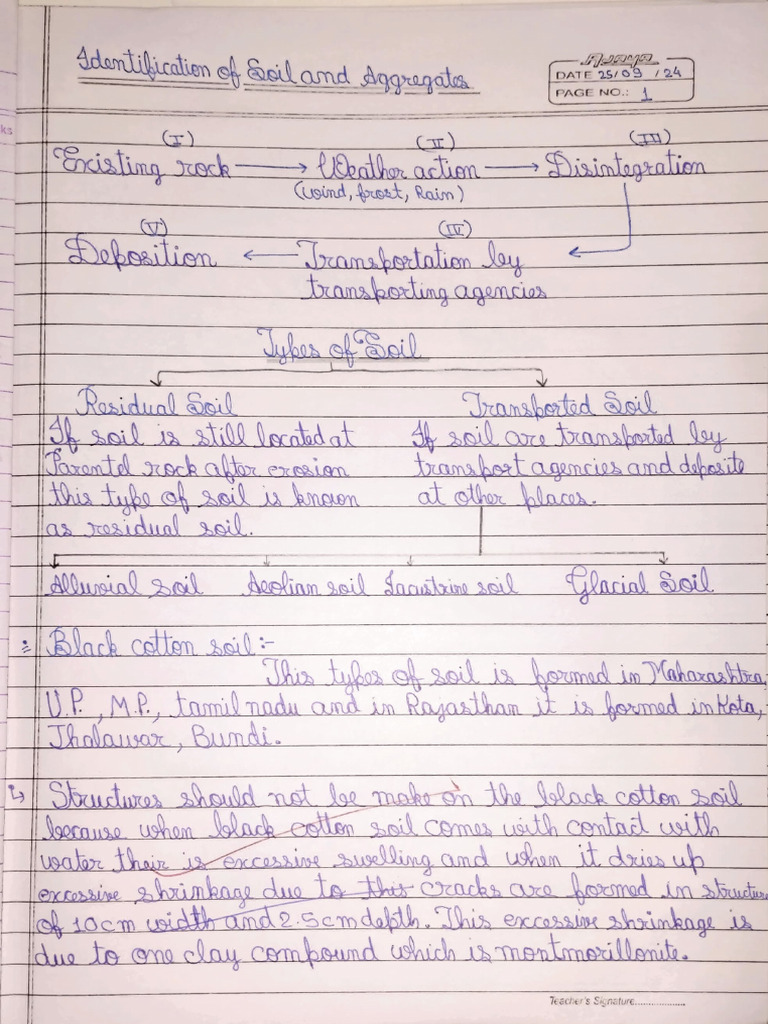 Identification of Soil and Aggregates
Ajaya
DATE 25/09/24
PAGE NO.: 1
ks
(I) (II) (III)
Existing rock → Weather action → Disintegration
(wind, frost, Rain)
(V) (IV)
Deposition ← Transportation by
transporting agencies
Types of Soil
Residual Soil Transported Soil
If soil is still located at If soil are transported by
Parentel rock after erosion transport agencies and deposite
this type of soil is known at other places.
as residual soil.
Alluvial Soil Aeolian soil Lacustrine soil Glacial Soil
Black cotton soil:-
This types of soil is formed in Maharashtra,
U.P., M.P., tamil nadu and in Rajasthan it is formed in Kota,
Jhalawar, Bundi.
Structures should not be make on the black cotton soil
because when black cotton soil comes with contact with
water their is excessive swelling and when it dries up
excessive shrinkage due to this cracks are formed in structure
of 10cm width and 2.5cm depth. This excessive shrinkage is
due to one clay compound which is montmorillonite.
Teacher's Signature....................